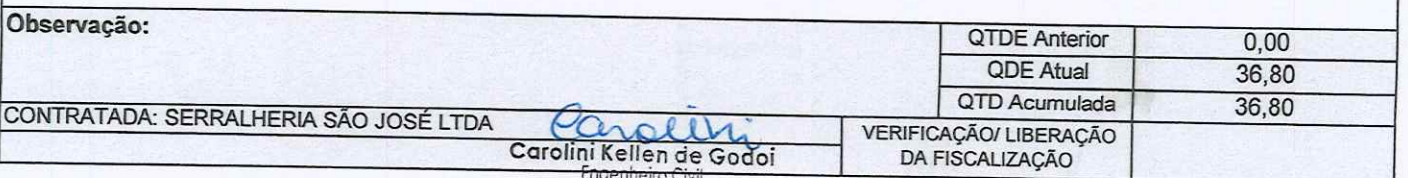 Observação:
QTDE Anterior 0,00
QDE Atual 36,80
QTD Acumulada 36,80
CONTRATADA: SERRALHERIA SÃO JOSÉ LTDA
Carolini
Carolini Kellen de Godoi
Engenheiro Civil
VERIFICAÇÃO/ LIBERAÇÃO
DA FISCALIZAÇÃO